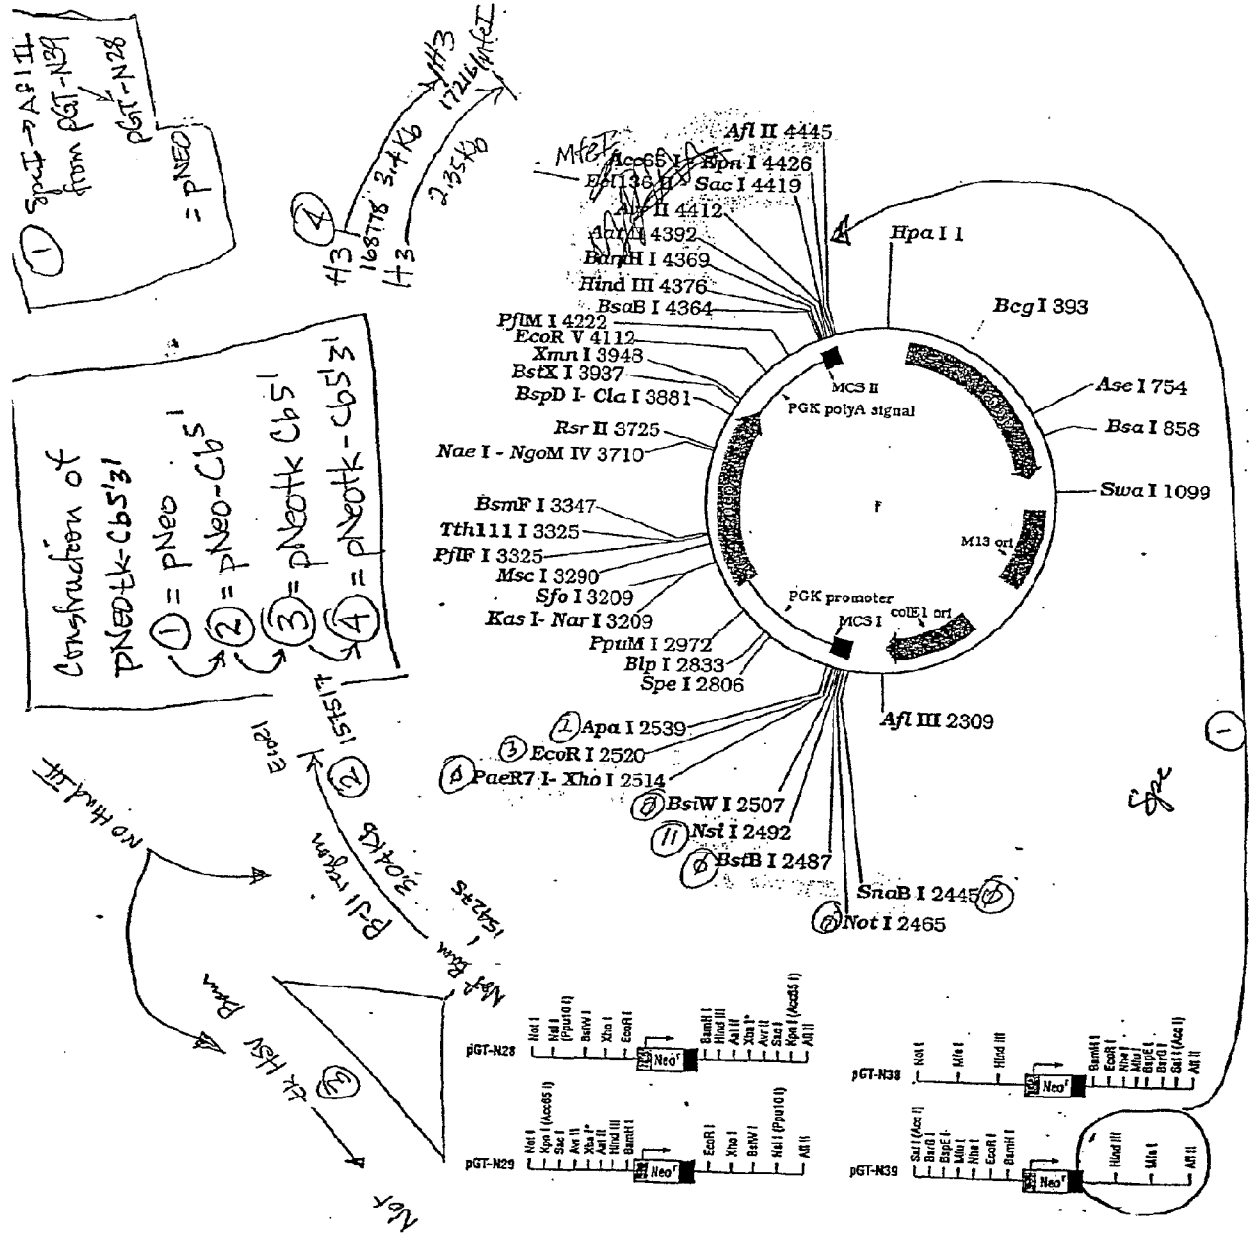 ① SpeI → AflII
from pGT-N39
pGT-N28
= pNEO
④
H3
168778
3.4 Kb
H3
17216
MfeI
H3
2.35Kb
Construction of
pNeotk-Cb5'3'
① = pNeo
② = pNeo-Cb5'
③ = pNeotk Cb5'
④ = pNeotk-Cb5'3'
MfeI
Afl II 4445
Acc65 I - Kpn I 4426
Ecl136 II - Sac I 4419
Avr II 4412
Aat II 4392
BamH I 4369
Hind III 4376
BsaB I 4364
PflM I 4222
EcoR V 4112
Xmn I 3948
BstX I 3937
BspD I - Cla I 3881
Rsr II 3725
Nae I - NgoM IV 3710
BsmF I 3347
Tth111 I 3325
PflF I 3325
Msc I 3290
Sfo I 3209
Kas I - Nar I 3209
PpuM I 2972
Blp I 2833
Spe I 2806
Apa I 2539
③ EcoR I 2520
PaeR7 I - Xho I 2514
BsiW I 2507
⑪ Nsi I 2492
BstB I 2487
SnaB I 2445
Not I 2465
Hpa I 1
Bcg I 393
Ase I 754
Bsa I 858
Swa I 1099
Afl III 2309
MCS II
PGK polyA signal
F
M13 ori
PGK promoter
MCS I
colE1 ori
①
Spe
NO Hind III
EcoRI
② 157517
B-JI region
3.04Kb
154275
Bam
③ tk HSV
Bam
Not
pGT-N28
Not I
Nsi I (Ppu10 I)
BsiW I
Xho I
EcoR I
Neoʳ
BamH I
Hind III
Aat II
Xba I*
Avr II
Sac I
Kpn I (Acc65 I)
Afl II
pGT-N29
Not I
Kpn I (Acc65 I)
Sac I
Avr II
Xba I*
Aat II
Hind III
BamH I
Neoʳ
EcoR I
Xho I
BsiW I
Nsi I (Ppu10 I)
Afl II
pGT-N38
Not I
Mfe I
Hind III
Neoʳ
BamH I
EcoR I
Nhe I
Mlu I
BspE I
BsrG I
Sal I (Acc I)
Afl II
pGT-N39
Sal I (Acc I)
BsrG I
BspE I
Mlu I
Nhe I
EcoR I
BamH I
Neoʳ
Hind III
Mfe I
Afl II